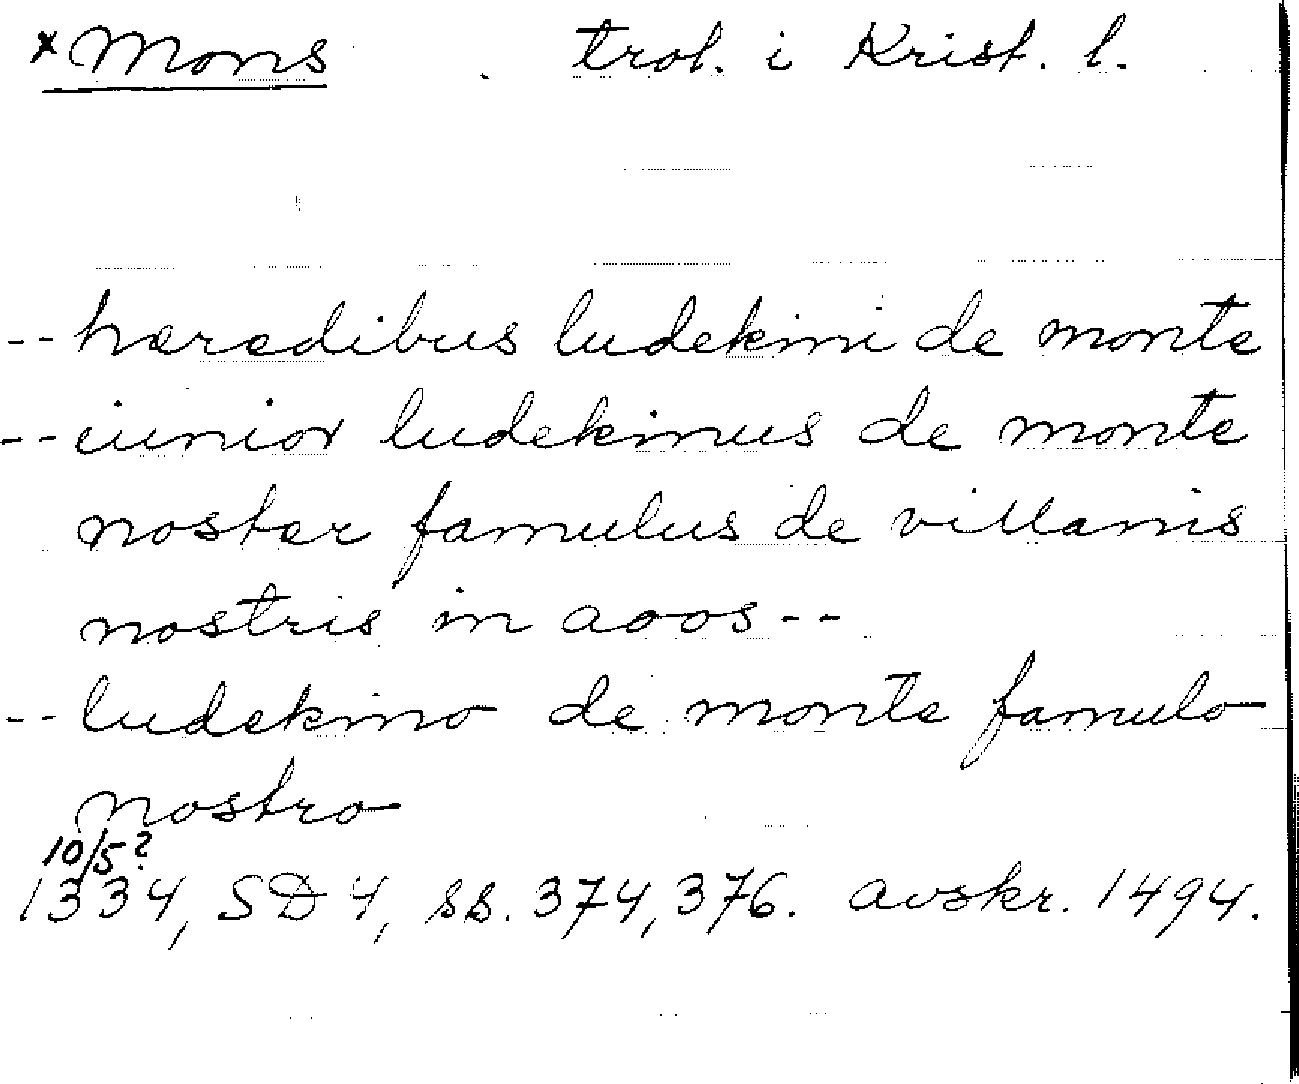 *Mons trol. i Krist. l.
-- heredibus ludekini de monte
-- iunior ludekinus de monte
noster famulus de villanis
nostris in aoos --
-- ludekino de monte famulo
nostro
10/5?
1334, SD 4, ss. 374, 376. avskr. 1494.